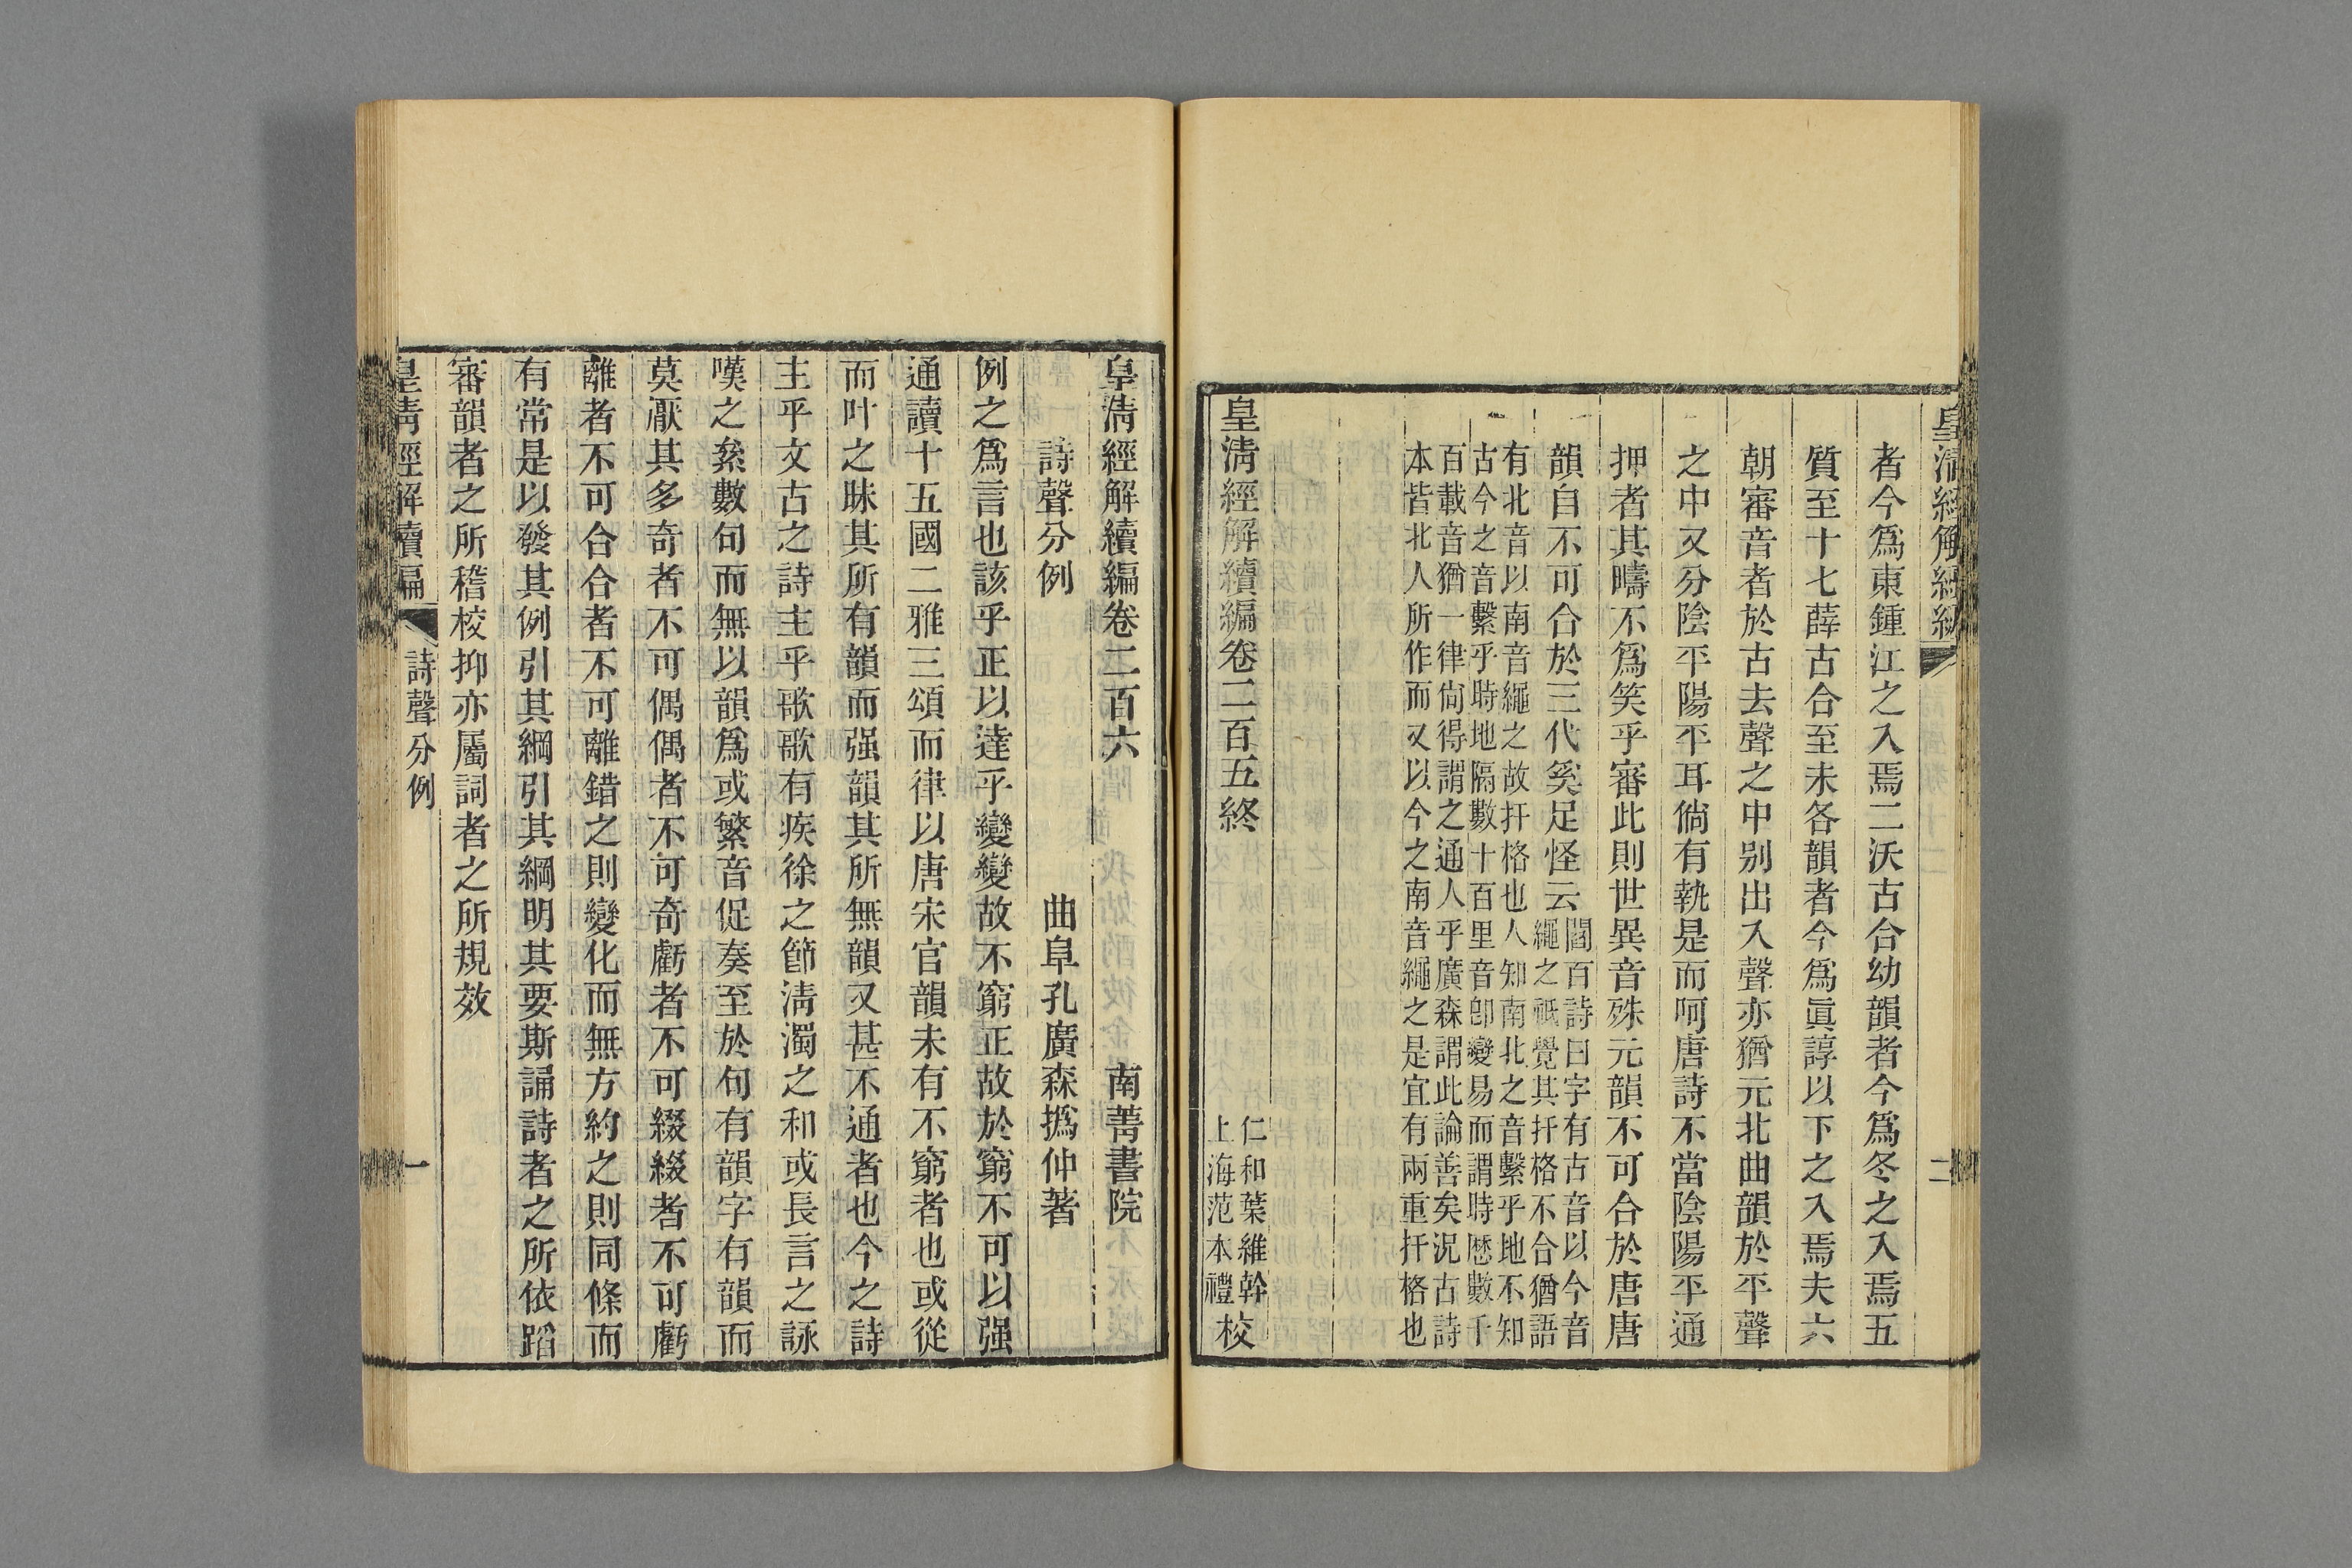 皇清經解續編
二
者今爲東鍾江之入焉二沃古合幼韻者今爲冬之入焉五
質至十七薛古合至未各韻者今爲眞諄以下之入焉夫六
朝審音者於古去聲之中别出入聲亦猶元北曲韻於平聲
之中又分陰平陽平耳倘有執是而呵唐詩不當陰陽平通
押者其疇不爲笑乎審此則世異音殊元韻不可合於唐唐
韻自不可合於三代奚足怪云
閻百詩曰字有古音以今音
繩之祇覺其扞格不合猶語
有北音以南音繩之故扞格也人知南北之音繫乎地不知
古今之音繫乎時地隔數十百里音卽變易而謂時歴數千
百載音猶一律尙得謂之通人乎廣森謂此論善矣況古詩
本皆北人所作而又以今之南音繩之是宜有兩重扞格也
皇清經解續編卷二百五終
仁和葉維幹
上海范本禮
校
皇清經解續編卷二百六
南菁書院
詩聲分例
曲阜孔廣森撝仲著
例之爲言也該乎正以達乎變變故不窮正故於窮不可以强
通讀十五國二雅三頌而律以唐宋官韻未有不窮者也或從
而叶之昧其所有韻而强韻其所無韻又甚不通者也今之詩
主乎文古之詩主乎歌歌有疾徐之節淸濁之和或長言之詠
嘆之絫數句而無以韻爲或繁音促奏至於句有韻字有韻而
莫厭其多奇者不可偶偶者不可奇虧者不可綴綴者不可虧
離者不可合合者不可離錯之則變化而無方約之則同條而
有常是以發其例引其綱引其綱明其要斯誦詩者之所依蹈
審韻者之所稽校抑亦屬詞者之所規效
皇清經解續編
詩聲分例
一